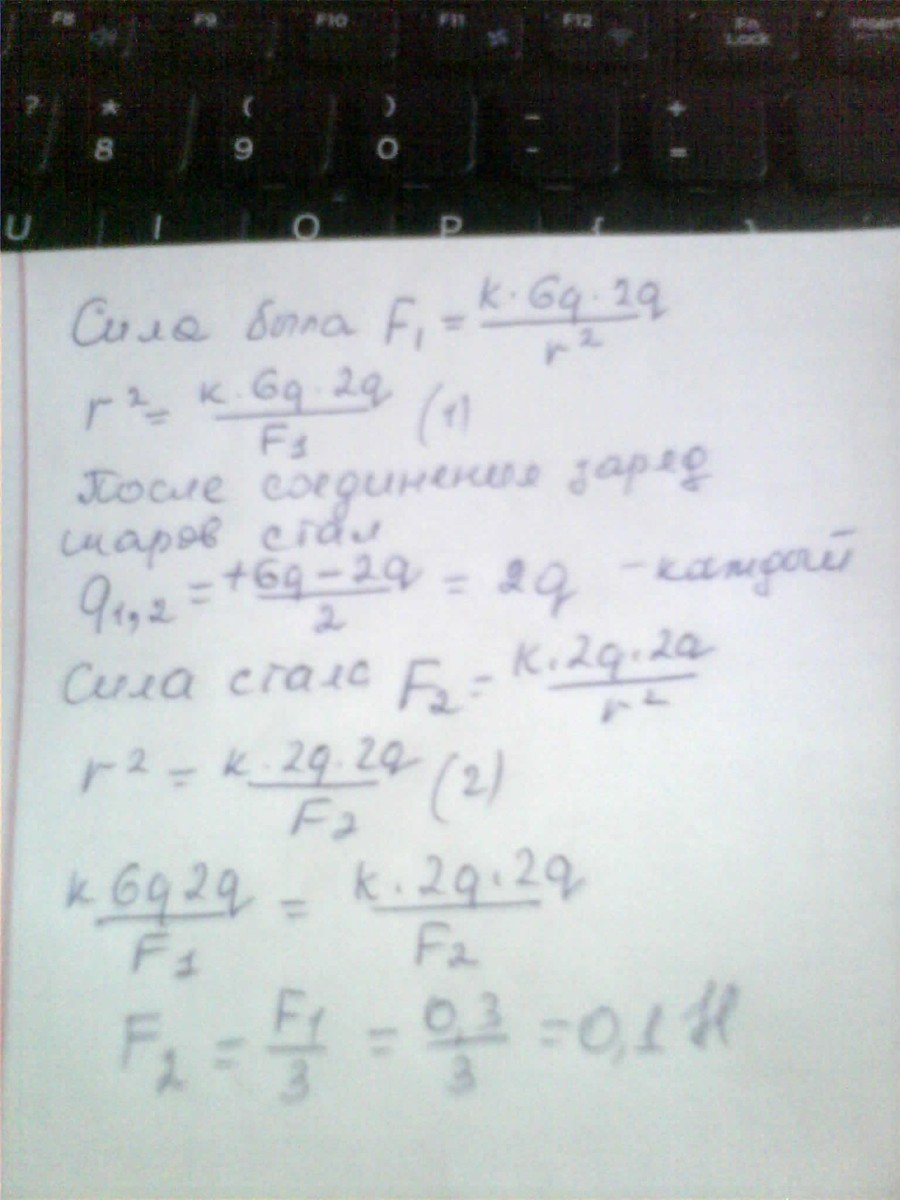 F8 F9 F10 F11 F12 Fn Lock Insert
? * ( ) _ +
8 9 0 - =
U I O P {
Сила была F₁ = k·6q·2q / r²
r² = k·6q·2q / F₁ (1)
После соединения заряд
шаров стал
q₁,₂ = +6q-2q / 2 = 2q - каждый
Сила стала F₂ = k·2q·2q / r²
r² = k·2q·2q / F₂ (2)
k 6q 2q / F₁ = k·2q·2q / F₂
F₂ = F₁ / 3 = 0,3 / 3 = 0,1 Н